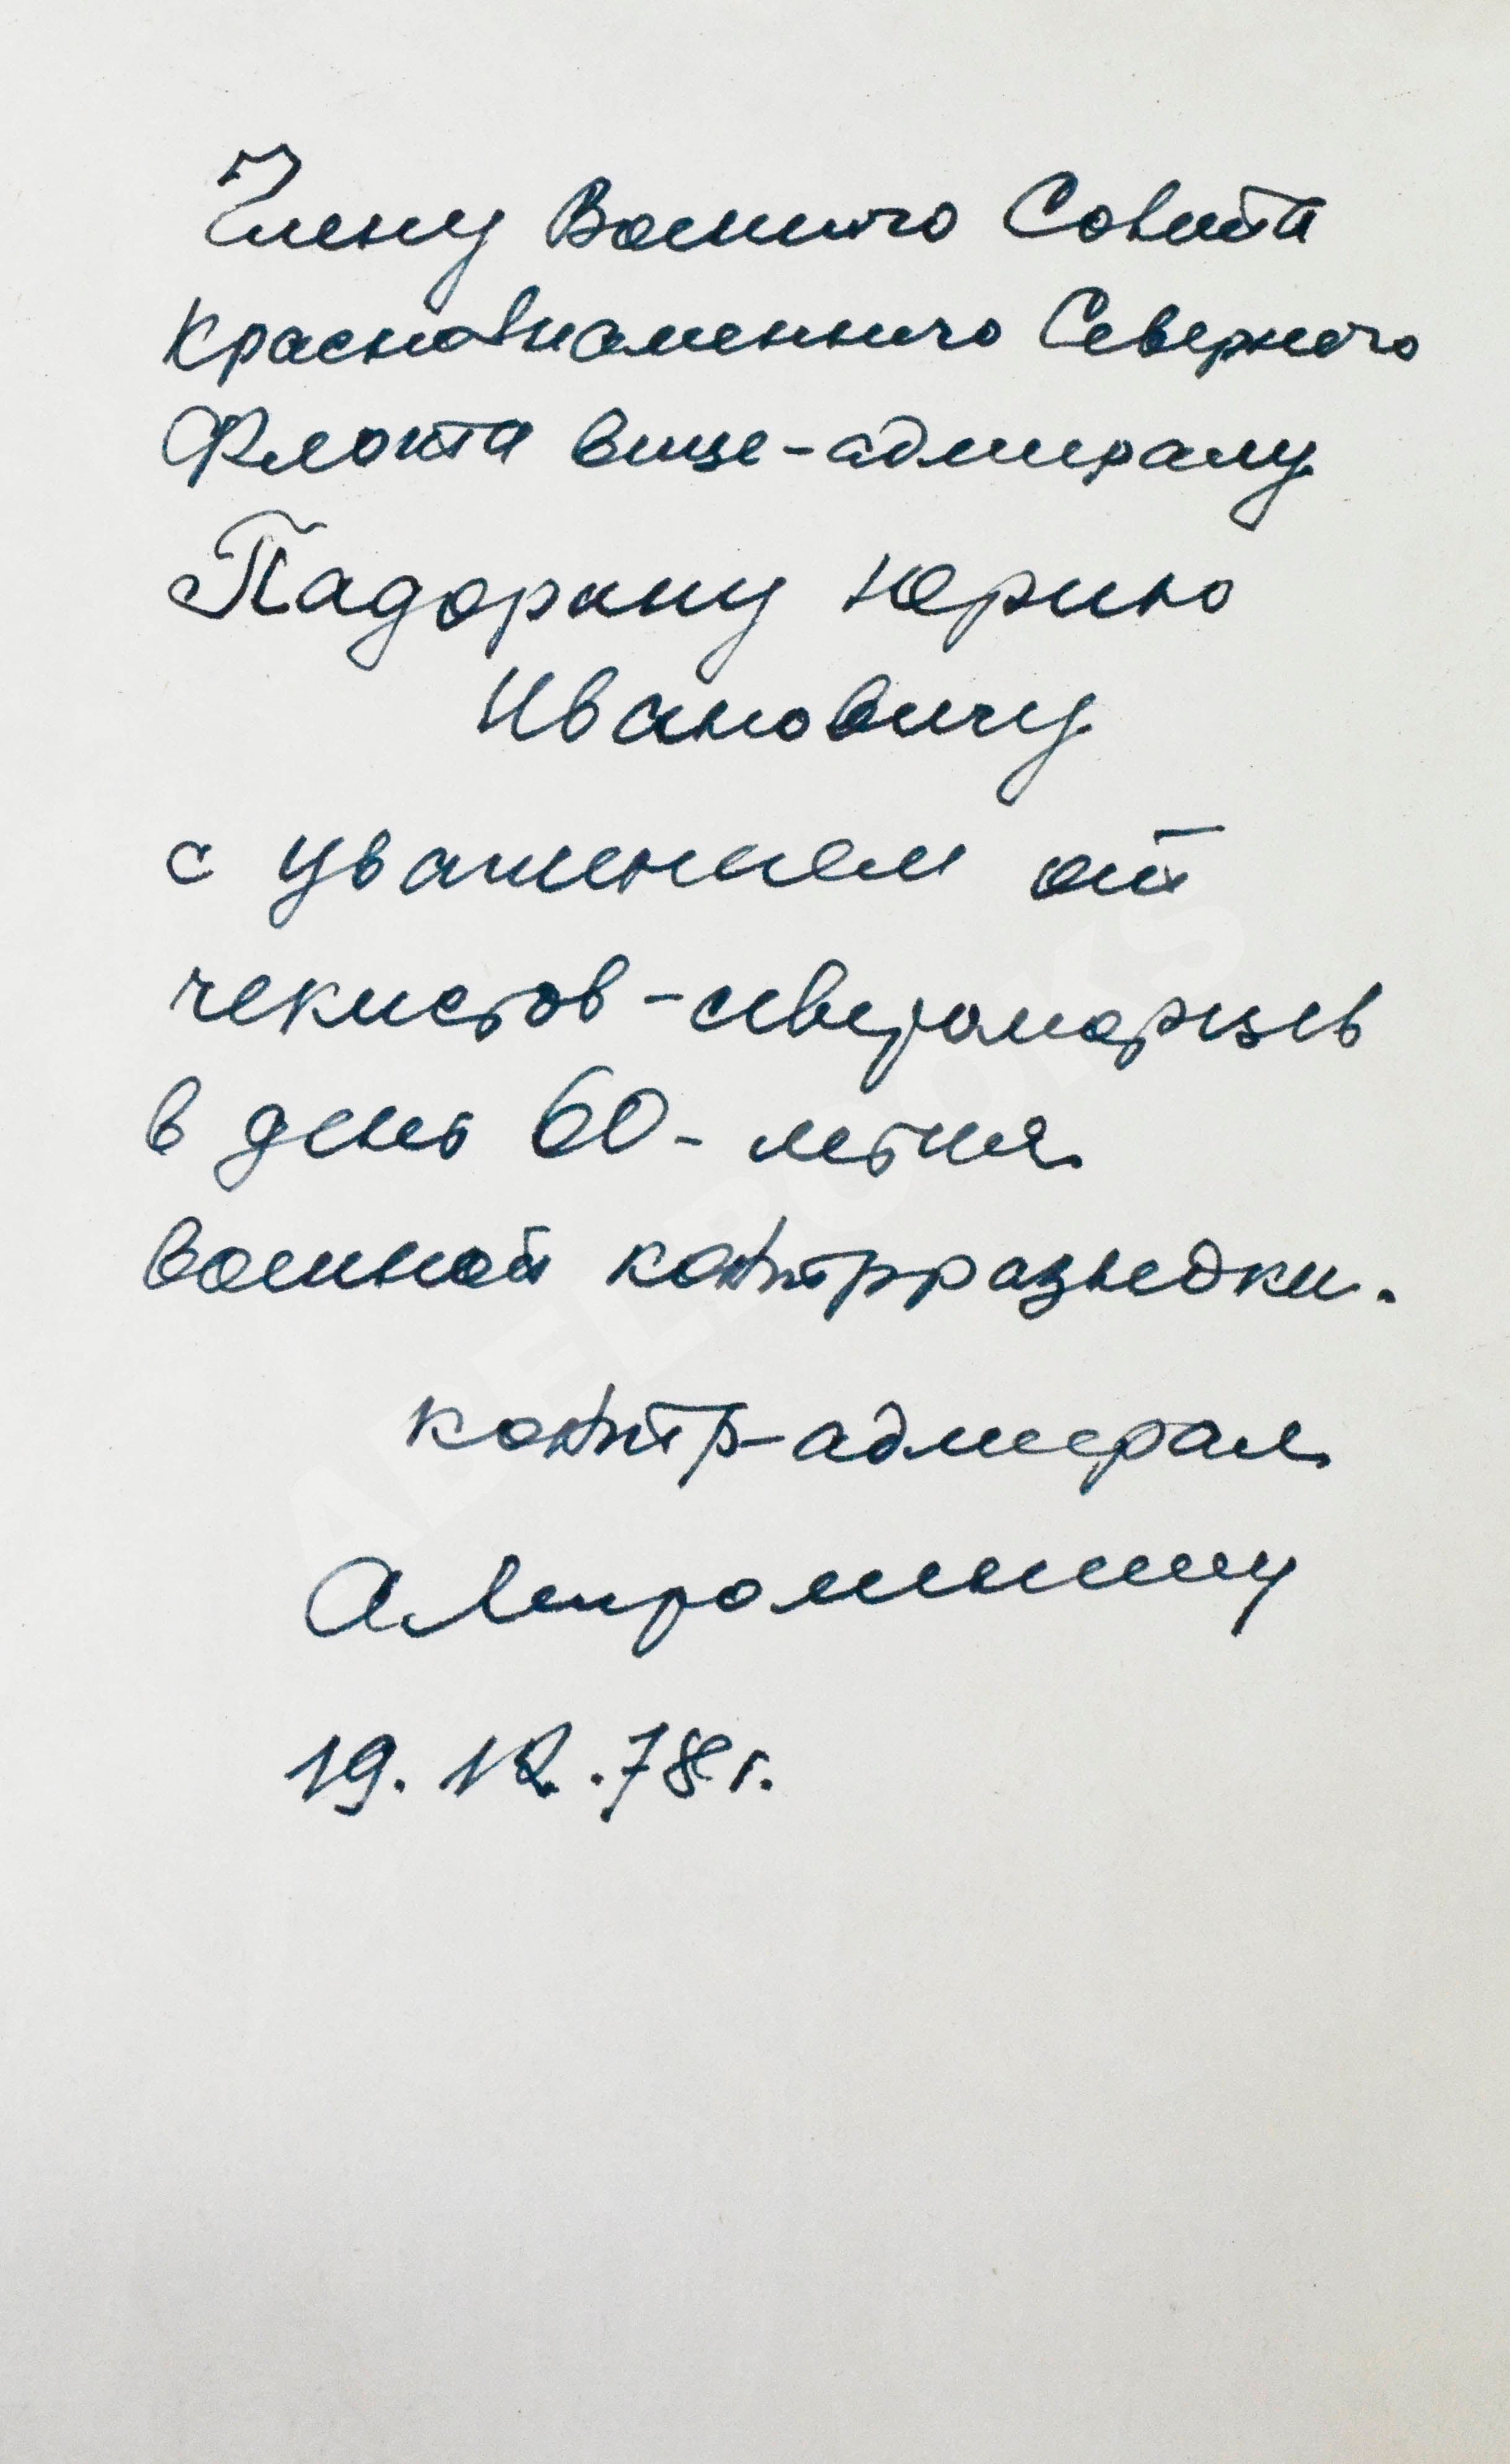 Члену Военного Совета
Краснознаменного Северного
Флота вице-адмиралу
Падорину Юрию
Ивановичу
с уважением от
чекистов-североморцев
в день 60-летия
военной контрразведки.
контр-адмирал
19.12.78г.
ABELBOOKS